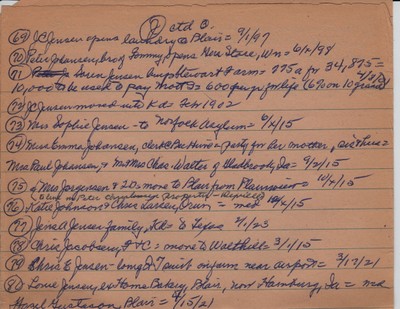 (7) ctd J.
(69) J C Jensen opens laundry @ Blair = 9/1/97
(70) Peter Johansen, bro of Tommy, opens New Store, Wn = 6/2/98
(71) Soren Jensen buys Stewart Farm = 775 a for 34,875 =
10,000 to be used to pay = 600 per yr for life (6% on 10 grand
(72) J C Jensen moved into Kd = Feb 1902
(73) Mrs Sophie Jensen - to Norfolk Asylum = 6/4/15
(74) Miss Emma Johansen, clerk @ = party for her mother, sixthree =
Mrs Paul Johansen, & M/Mrs Chas. Walter of Gladbrook, Ia = 9/2/15
(75) Mrs Jorgensen & 20 = move to Blair from Plainview = 10/4/15
(76) Katie Johnson & Chris Larsen, Orum = md 10/4/15
(77) Jens A Jensen family, Kd - to Texas 2/1/23
(78) Chris Jacobsen, = moved to Walthill 3/1/15
(79) Chris E Jensen - long on farm near airport = 3/17/21
(80) Louie Jensen, ex Home Bakery, Blair, now Hamburg, Ia = md
Hazel Gustason, Blair = 9/15/21